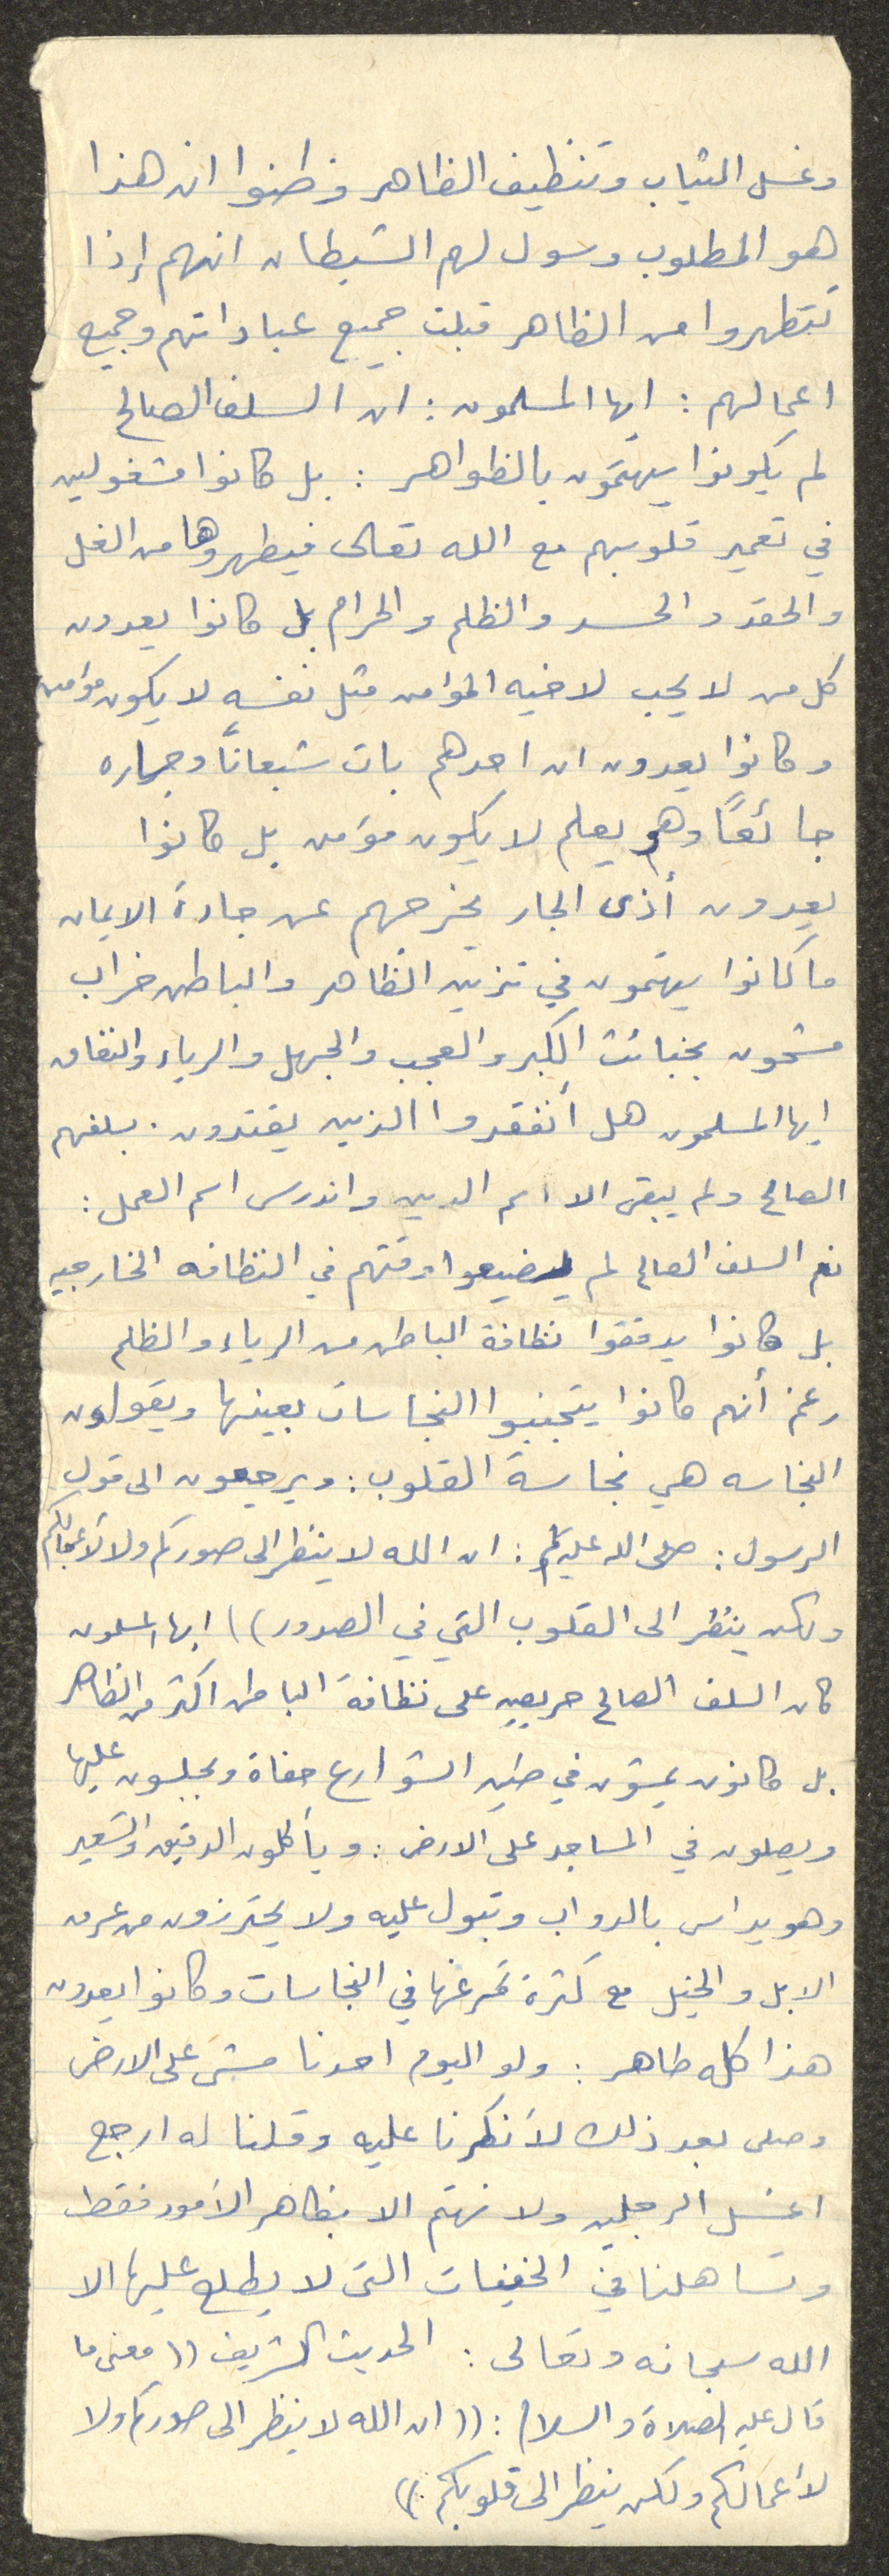 وغسل الثياب وتنظيف الظاهر وظنوا ان هذا
هو المطلوب وسول لهم الشيطان انهم إذا
تتطهروا من الظاهر قبلت جميع عباداتهم وجميع
اعمالهم : ايها المسلمون : ان السلف الصالح
لم يكونوا يهتمون بالظواهر : بل كانوا مشغولين
في تعمير قلوبهم مع الله تعالى فيطهروها من الغل
والحقد والحسد والظلم والحرام بل كانوا يعدون
كل من لا يحب لاخيه المؤمن مثل نفسه لا يكون مؤمن
وكانوا يعدون ان احدهم بات شبعاناً وجاره
جائعاً وهو يعلم لا يكون مؤمن بل كانوا
يعدون أذى الجار يخرجهم عن جادة الايمان
ما كانوا يهتمون في تزيين الظاهر والباطن خراب
مشحون بخبائث الكبر والعجب والجهل والرياء والنفاق
ايها المسلمون هل أنفقدوا الذين يقتدون . بسلفهم
الصالح ولم يبقى الا اسم الدين واندرس اسم العمل :
نعم السلف الصالح لم يضيعوا وقتهم في النظافه الخارجيه
بل كانوا يدققوا نظافة الباطن من الرياء والظلم
رغم أنهم كانوا يتجنبوا النجاسات بعينها ويقولون
النجاسه هي نجاسة القلوب : ويرجعون الى قول
الرسول : صلى الله عليه : ان الله لا ينظر الى صوركم ولا لاعمالكم
ولكن ينظر الى القلوب التي في الصدور )) ايها المسلمون
كان السلف الصالح حريصين على نظافة الباطن اكثر من الظاهر
بل كانون يمشون في طين الشوارع حفاة ويجلسون عليها
ويصلون في المساجد على الارض : ويأكلون الدقيق والشعير
وهو يداس بالدواب وتبول عليه ولا يحترزون من عرق
الابل والخيل مع كثرة تمرغها في النجاسات وكانوا يعدون
هذا كله طاهر : ولو اليوم احدنا مشى على الارض
وصلى بعد ذلك لأنكرنا عليه وقلنا له ارجع
اغسل الرجلين ولا نهتم الا بظاهر الأمور فقط
وتساهلنا في الخفيات التى لا يطلع عليها الا
الله سبحانه وتعالى : الحديث الشريف (( معنى ما
قال عليه الصلاة والسلام : (( ان الله لا ينظر الى صوركم ولا
لأعمالكم ولكن ينظر الى قلوبكم ))